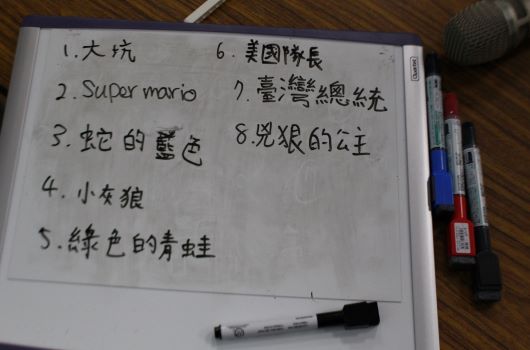 1. 大坑
2. Super mario
3. 蛇的藍色
4. 小灰狼
5. 綠色的青蛙
6. 美國隊長
7. 臺灣總統
8. 兇狠的公主
Quartet